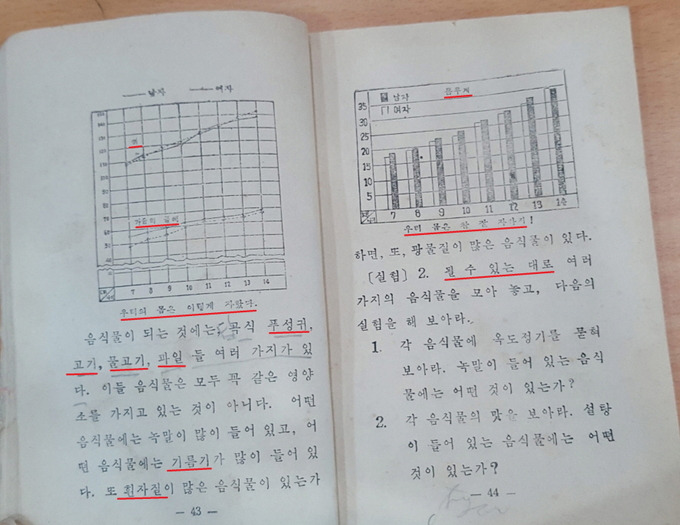 남자 여자
키
가슴의 둘레
7 8 9 10 11 12 13 14
우리의 몸은 이렇게 자랐다.
음식물이 되는 것에는, 곡식 푸성귀,
고기, 물고기, 과일 들 여러 가지가 있
다. 이들 음식물은 모두 꼭 같은 영양
소를 가지고 있는 것이 아니다. 어떤
음식물에는 녹말이 많이 들어 있고, 어
떤 음식물에는 기름기가 많이 들어 있
다. 또 흰자질이 많은 음식물이 있는가
— 43 —
남자
여자
몸무게
35
30
25
20
15
10
5
0
7 8 9 10 11 12 13 14
우리 몸은 잘 자란다!
하면, 또, 광물질이 많은 음식물이 있다.
[실험] 2. 될 수 있는 대로 여러
가지의 음식물을 모아 놓고, 다음의
실험을 해 보아라.
1. 각 음식물에 옥도정기를 묻혀
보아라. 녹말이 들어 있는 음식
물에는 어떤 것이 있는가?
2. 각 음식물의 맛을 보아라. 설탕
이 들어 있는 음식물에는 어떤
것이 있는가?
— 44 —